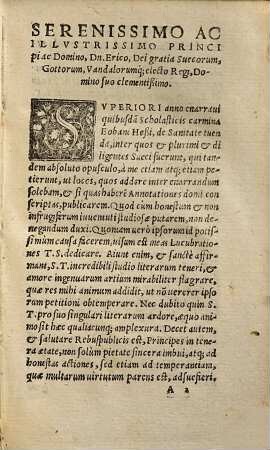 SERENISSIMO AC
ILLVSTRISSIMO PRINCI
pi ac Domino, Dn. Erico, Dei gratia Suecorum,
Gottorum, Vandalorumq́; electo Regi, Do-
mino suo clementissimo.
SVPERIORI anno enarraui
quibusdã Scholasticis carmina
Eobani Hessi, de Sanitate tuen
da, inter quos & plurimi & di
ligentes Sueci fuerunt, qui tan
dem absoluto opusculo, à me etiam atq; etiam pe
tierunt, ut locos, quos addere inter enarrandum
solebam, & si quas haberẽ Annotationes domi con
scriptas, publicarem. Quod cùm honestum & non
infrugiferum iuuentuti studiosæ putarem, non de-
negandum duxi. Quoniam uerò ipsorum id potis
simùm causa facerem, uisum est meas Lucubratio-
nes T.S. dedicare. Aiunt enim, & sanctè affir-
mant, S.T. incredibili studio literarum teneri, &
amore ingenuarum artium mirabiliter flagrare,
quæ res mihi animum addidit, ut nõ uererer ipso
rum petitioni obtemperare. Nec dubito quin S.
T. pro suo singulari literarum ardore, æquo ani-
mo sit hæc qualiacunq; amplexura. Decet autem,
& salutare Rebuspublicis est, Principes in tene-
ra ætate, non solùm pietate sincera imbui, atq; ad
honestas actiones, sed etiam ad temperantiam,
quæ multarum uirtutum parens est, adsuefieri.
A 2